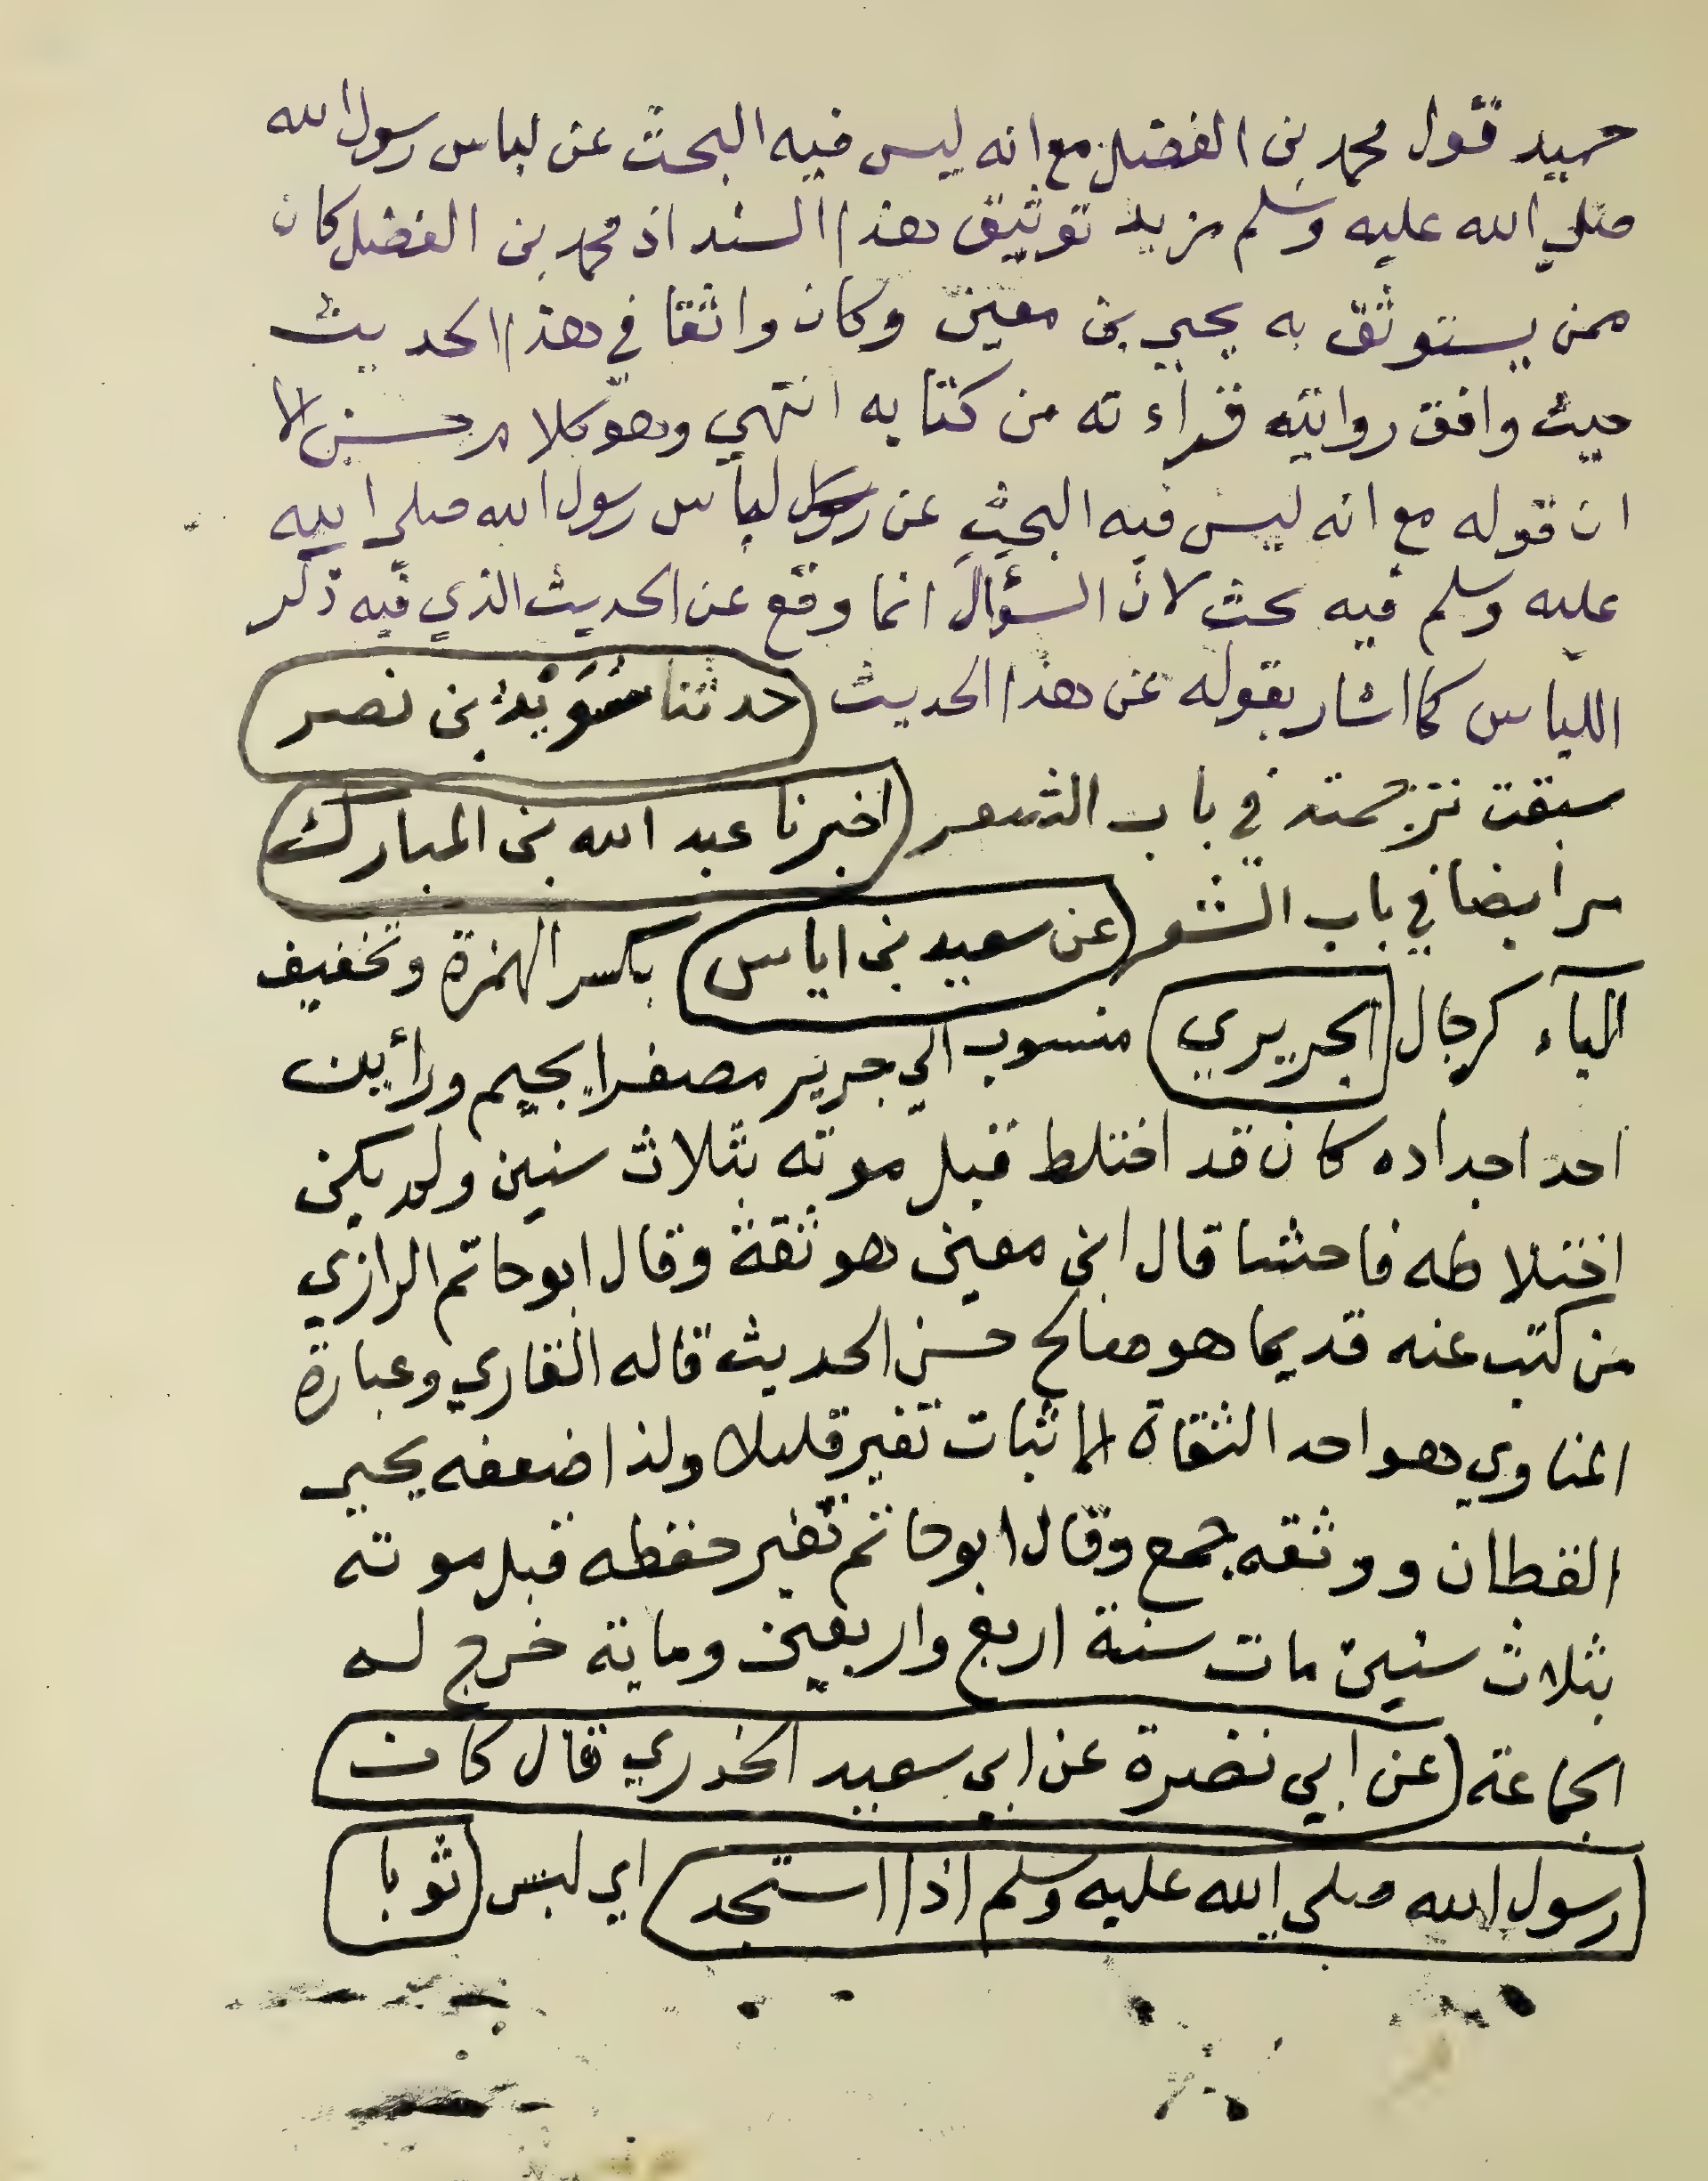 حميد قول محمد بن الفضل مع انه ليس فيه البحث عن لباس رسول الله
صلي الله عليه وسلم مزيد توثيق هذا السند اذ محمد بن الفضل كان
ممن يستوثق به يحيي بن معين وكان واثقا في هذا الحديث
حيث وافق روايته قراءته من كتابه انتهي وهو كلام حسن الا
ان قوله مع انه ليس فيه البحث عن لباس رسول الله صلي الله
عليه وسلم فيه بحث لان السؤال انما وقع عن الحديث الذي فيه ذكر
اللباس كما اشار بقوله عن هذا الحديث (حدثنا سُوَيْدُ بن نصر
سبقت ترجمته في باب الشعر (اخبرنا عبد الله بن المبارك
مر ايضا في باب الشعر (عن سعيد بن اياس) بكسر الهمزة وتخفيف
الياء كرجال (الجريري) منسوب الي جرير مصغرا بجيم ورأين
احد اجداده كان قد اختلط قبل موته بثلاث سنين ولم يكن
اختلاطه فاحشا قال ابن معين هو ثقة وقال ابو حاتم الرازي
من كتب عنه قديما هو صالح حسن الحديث قاله القاري وعبارة
المناوي هو احد الثقاة الاثبات تغير قليلا ولذا ضعفه يحيي
القطان ووثقه جمع وقال ابو حاتم تغير حفظه قبل موته
بثلاث سنين مات سنة اربع واربعين وماية خرج له
الجماعة (عن ابي نضرة عن ابي سعيد الخدري قال كان
رسول الله صلي الله عليه وسلم اذا استجد) اي لبس (ثوبا